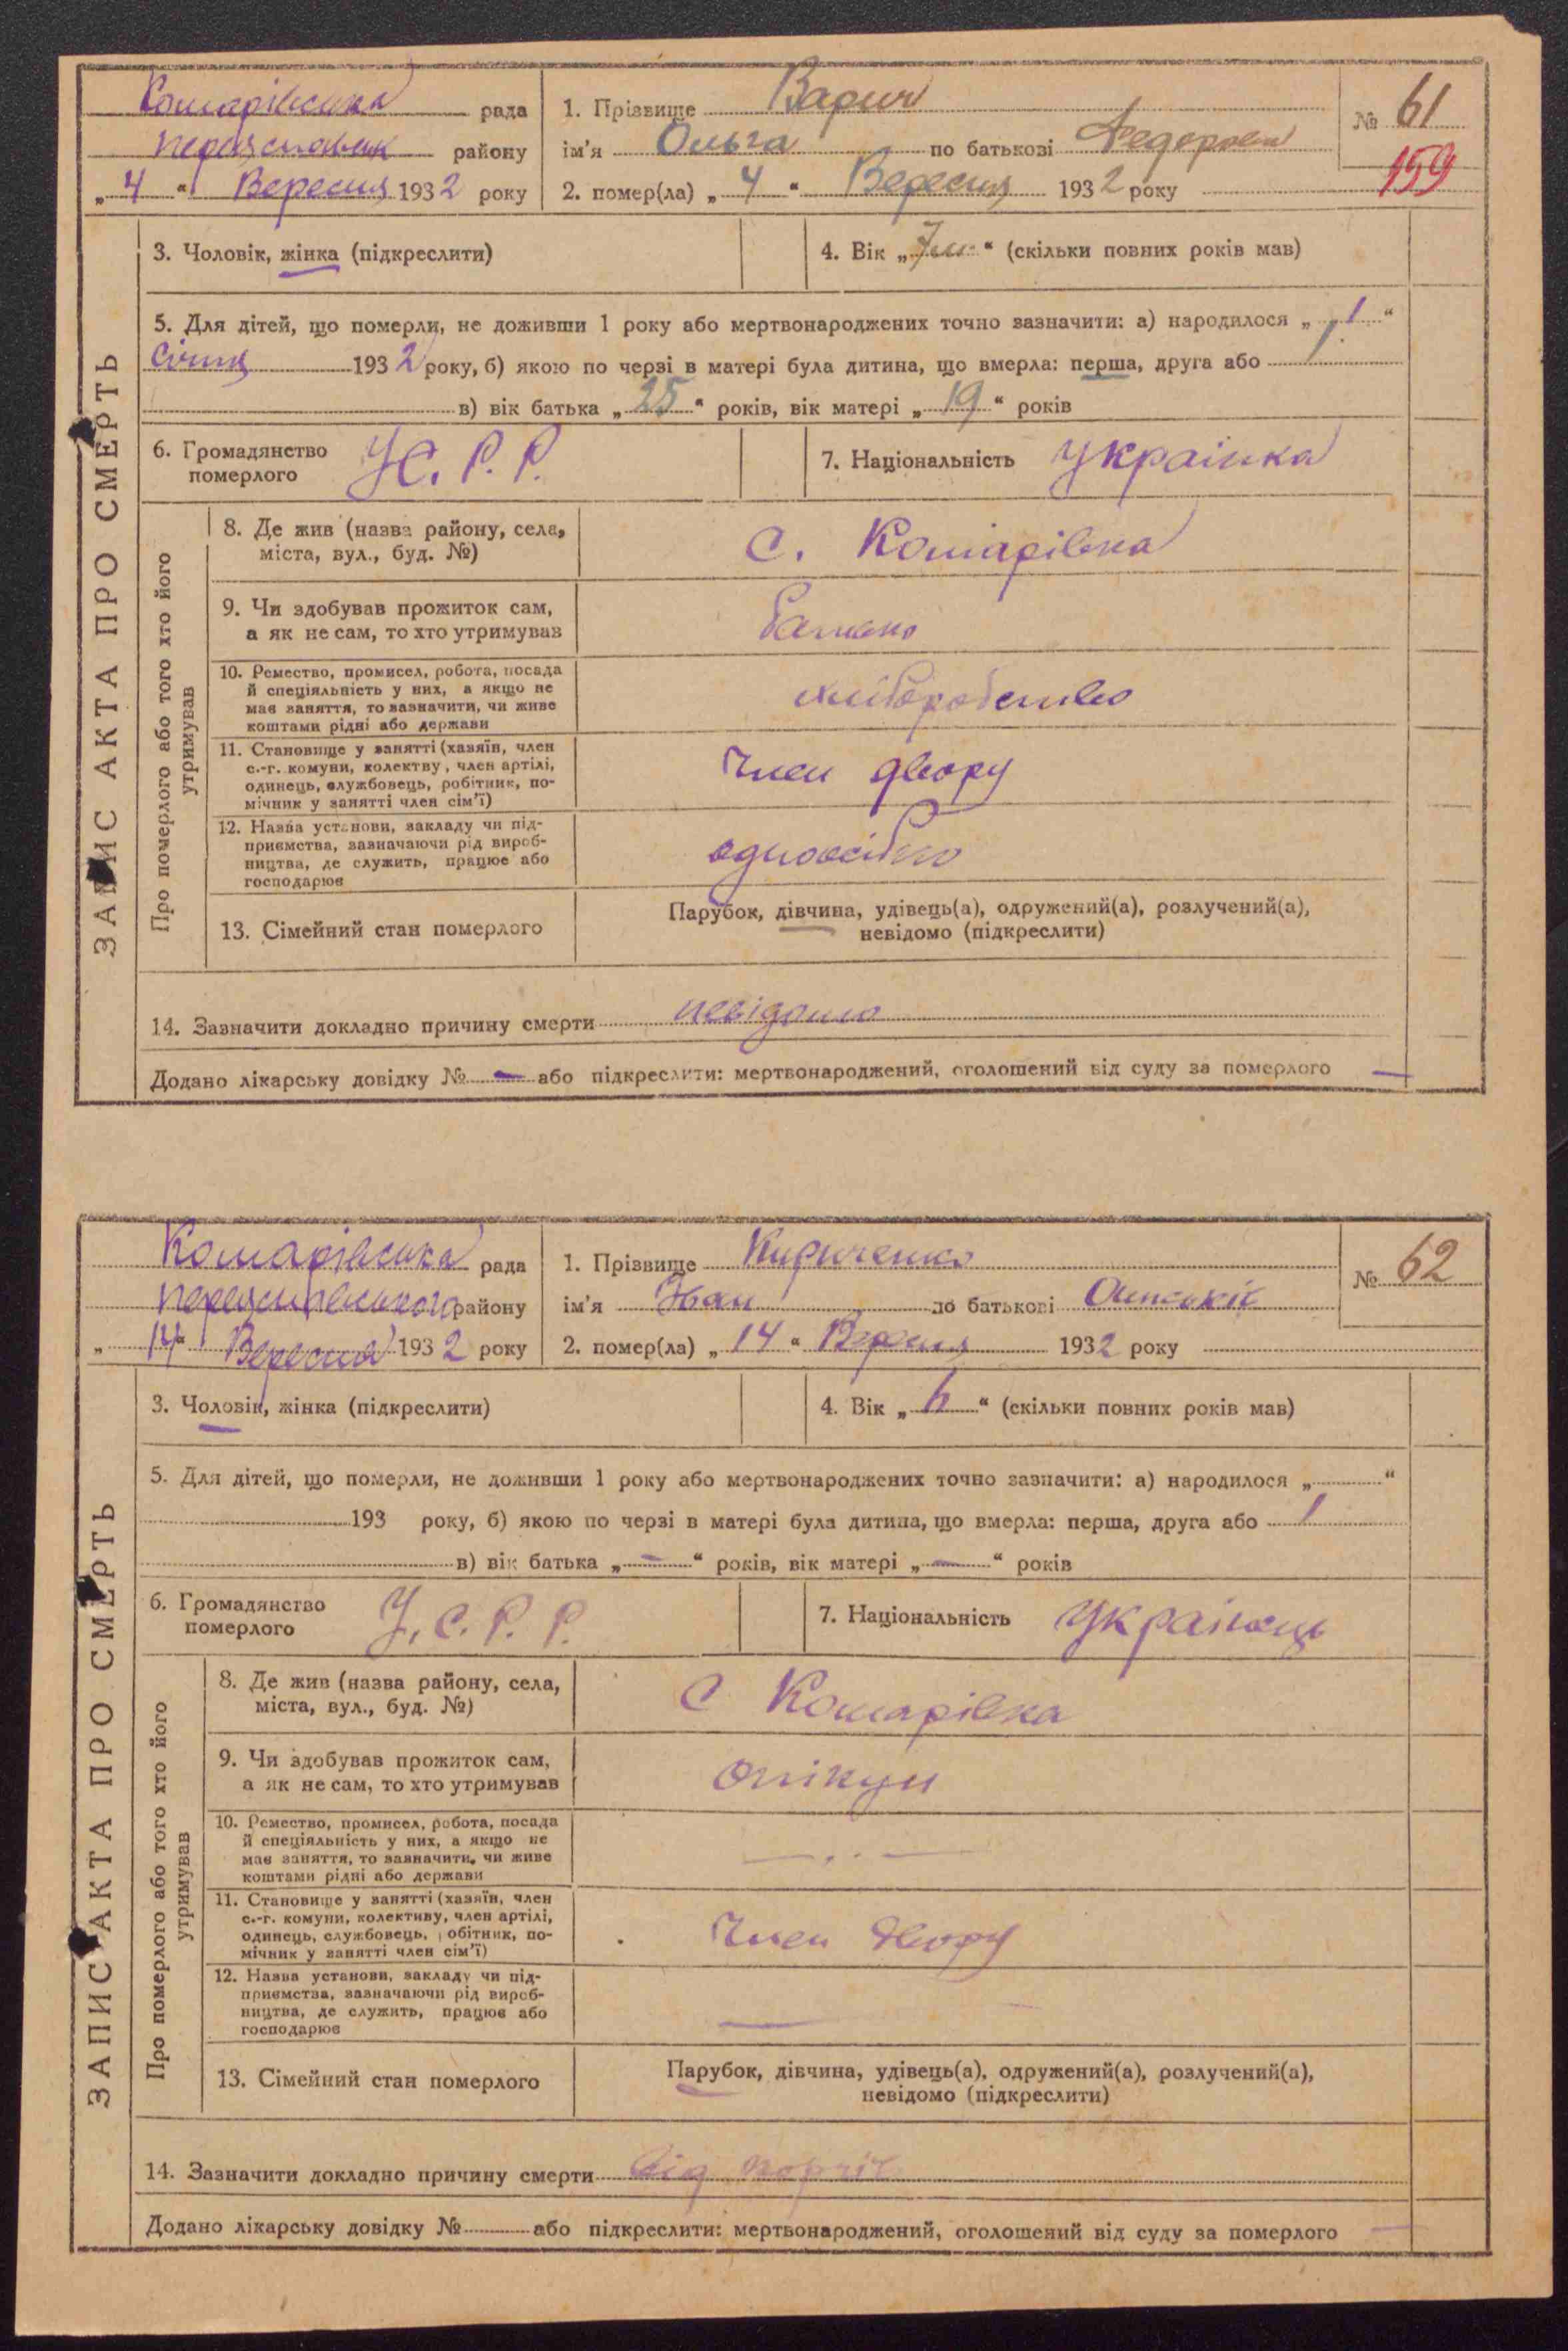 Комарівська рада
району
„ 4 “ Вересня 1932 року
1. Прізвище Варич
ім'я Ольга по батькові
2. помер(ла) „ 4 “ Вересня 1932 року
№ 61
159
ЗАПИС АКТА ПРО СМЕРТЬ
3. Чоловік, жінка (підкреслити)
4. Вік „ 7 м. “ (скільки повних років мав)
5. Для дітей, що померли, не доживши 1 року або мертвонароджених точно зазначити: а) народилося „ 1 “
Січня 1932 року, б) якою по черзі в матері була дитина, що вмерла: перша, друга або 1.
в) вік батька „ 25 “ років, вік матері „ 19 “ років
6. Громадянство
померлого
У.С.Р.Р.
7. Національність Українка
Про померлого або того хто його
утримував
8. Де жив (назва району, села,
міста, вул., буд. №)
С. Комарівка
9. Чи здобував прожиток сам,
а як не сам, то хто утримував
10. Ремество, промисел, робота, посада
й спеціяльність у них, а якщо не
має заняття, то зазначити, чи живе
коштами рідні або держави
хліборобство
11. Становище у занятті (хазяїн, член
с.-г. комуни, колектву, член артілі,
одинець, службовець, робітник, по-
мічник у занятті член сім'ї)
Член двору
12. Назва установи, закладу чи під-
приємства, зазначаючи рід вироб-
ництва, де служить, працює або
господарює
одноосібно
13. Сімейний стан померлого
Парубок, дівчина, удівець(а), одружений(а), розлучений(а),
невідомо (підкреслити)
14. Зазначити докладно причину смерти невідомо
Додано лікарську довідку № — або підкреслити: мертвонароджений, оголошений від суду за померлого —
Комарівська рада
району
„ 14 “ Вересня 1932 року
1. Прізвище Кириченко
ім'я Іван по батькові
2. помер(ла) „ 14 “ Вересня 1932 року
№ 62
ЗАПИС АКТА ПРО СМЕРТЬ
3. Чоловік, жінка (підкреслити)
4. Вік „ 6 “ (скільки повних років мав)
5. Для дітей, що померли, не доживши 1 року або мертвонароджених точно зазначити: а) народилося „ “
193 року, б) якою по черзі в матері була дитина, що вмерла: перша, друга або
в) вік батька „ — “ років, вік матері „ — “ років
6. Громадянство
померлого
У.С.Р.Р.
7. Національність Українець
Про померлого або того хто його
утримував
8. Де жив (назва району, села,
міста, вул., буд. №)
С Комарівка
9. Чи здобував прожиток сам,
а як не сам, то хто утримував
опікун
10. Ремество, промисел, робота, посада
й спеціяльність у них, а якщо не
має заняття, то зазначити, чи живе
коштами рідні або держави
11. Становище у занятті (хазяїн, член
с.-г. комуни, колективу, член артілі,
одинець, службовець, робітник, по-
мічник у занятті член сім'ї)
Член двору
12. Назва установи, закладу чи під-
приємства, зазначаючи рід вироб-
ництва, де служить, працює або
господарює
—
13. Сімейний стан померлого
Парубок, дівчина, удівець(а), одружений(а), розлучений(а),
невідомо (підкреслити)
14. Зазначити докладно причину смерти від
Додано лікарську довідку № або підкреслити: мертвонароджений, оголошений від суду за померлого —